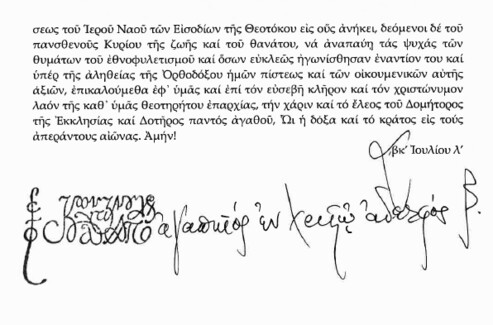 σεως τοῦ Ἱεροῦ Ναοῦ τῶν Εἰσοδίων τῆς Θεοτόκου εἰς οὕς ἀνήκει, δεόμενοι δέ τοῦ
πανσθενοῦς Κυρίου τῆς ζωῆς καί τοῦ θανάτου, νά ἀναπαύη τάς ψυχάς τῶν
θυμάτων τοῦ ἐθνοφυλετισμοῦ καί ὅσων εὐκλεῶς ἠγωνίσθησαν ἐναντίον του καί
ὑπέρ τῆς ἀληθείας τῆς Ὀρθοδόξου ἡμῶν πίστεως καί τῶν οἰκουμενικῶν αὐτῆς
ἀξιῶν, ἐπικαλούμεθα ἐφ᾽ ὑμᾶς καί ἐπί τόν εὐσεβῆ κλῆρον καί τόν χριστώνυμον
λαόν τῆς καθ᾽ ὑμᾶς θεοτηρήτου ἐπαρχίας, τήν χάριν καί τό ἔλεος τοῦ Δομήτορος
τῆς Ἐκκλησίας καί Δοτῆρος παντός ἀγαθοῦ, Ὧι ἡ δόξα καί τό κράτος εἰς τούς
ἀπεράντους αἰῶνας. Ἀμήν!
͵βκ´ Ἰουλίου λ´
ἀγαπητός ἐν Χριστῷ ἀδελφός